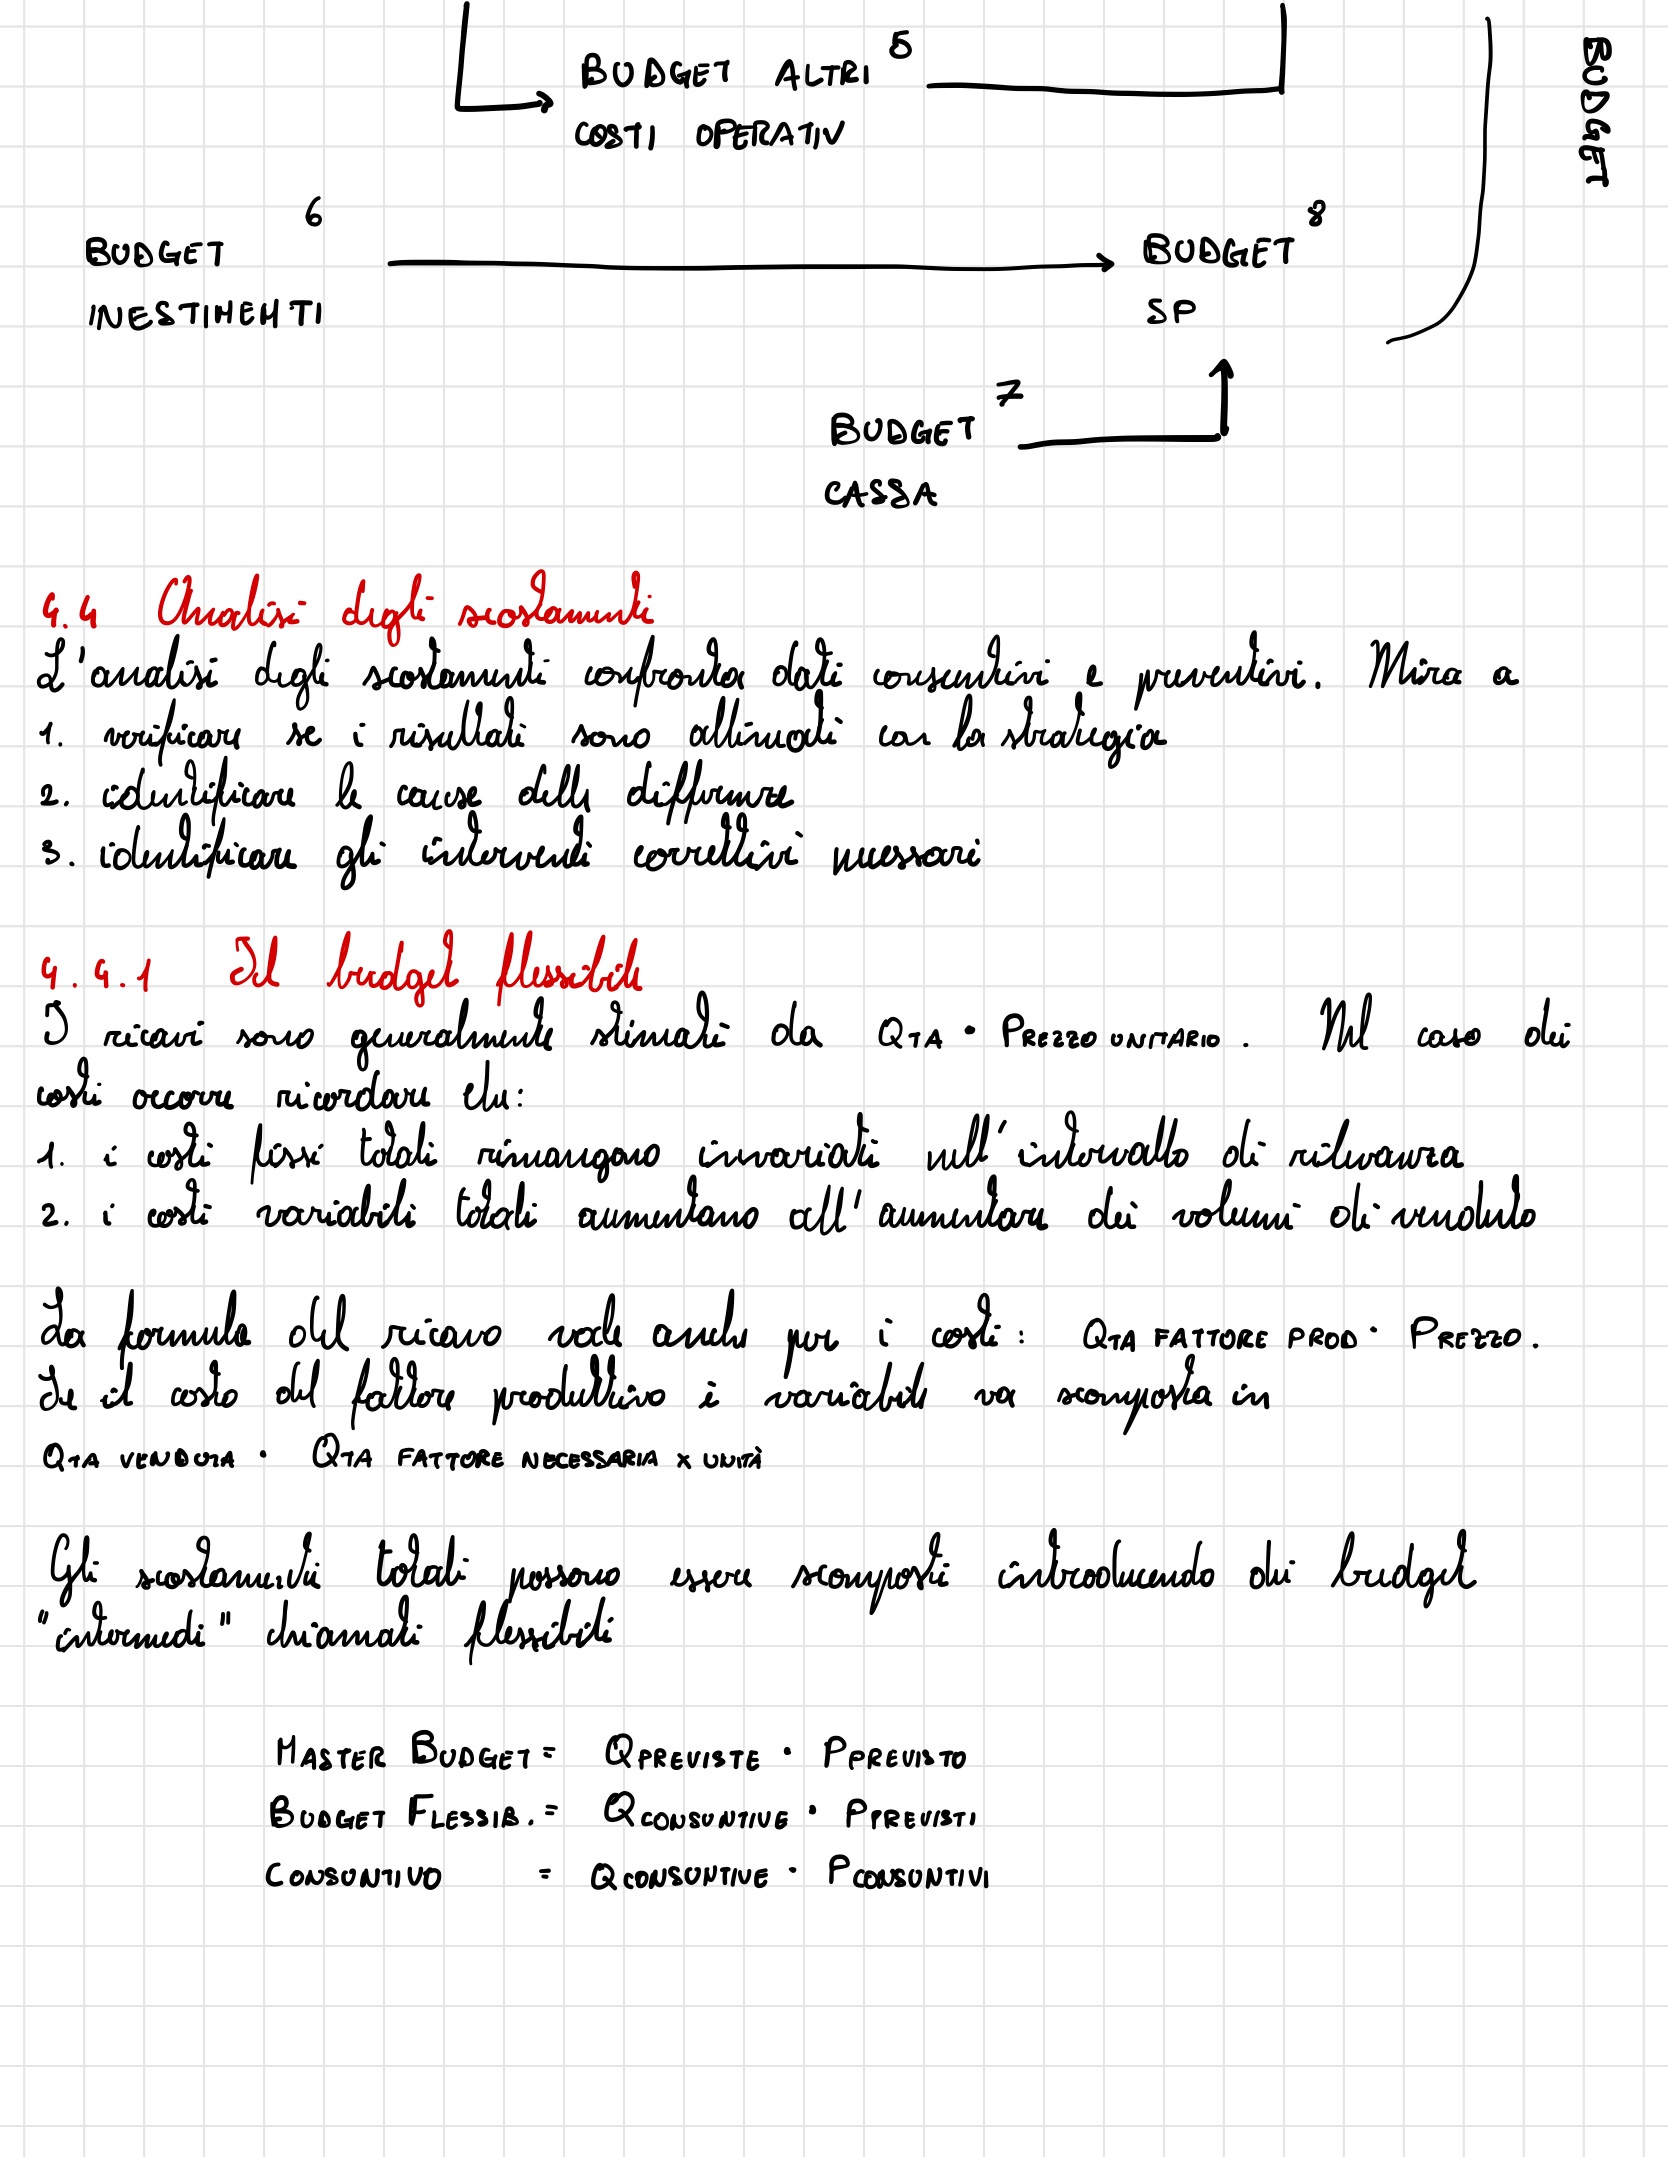 BUDGET ALTRI 5
COSTI OPERATIV
BUDGET
BUDGET 6
INESTIMENTI
BUDGET 8
SP
BUDGET 7
CASSA
4.4 Analisi degli scostamenti
L'analisi degli scostamenti confronta dati consuntivi e preventivi. Mira a
1. verificare se i risultati sono allineati con la strategia
2. identificare le cause delle differenze
3. identificare gli interventi correttivi necessari
4.4.1 Il budget flessibile
I ricavi sono generalmente stimati da QTA · PREZZO UNITARIO. Nel caso dei
costi occorre ricordare che:
1. i costi fissi totali rimangono invariati nell'intervallo di rilevanza
2. i costi variabili totali aumentano all'aumentare dei volumi di venduto
La formula del ricavo vale anche per i costi: QTA FATTORE PROD · PREZZO.
Se il costo del fattore produttivo è variabile va scomposta in
QTA VENDUTA · QTA FATTORE NECESSARIA X UNITÀ
Gli scostamenti totali possono essere scomposti introducendo dei budget
"intermedi" chiamati flessibili
MASTER BUDGET = QPREVISTE · PPREVISTO
BUDGET FLESSIB. = QCONSUNTIVE · PPREVISTI
CONSUNTIVO = QCONSUNTIVE · PCONSUNTIVI